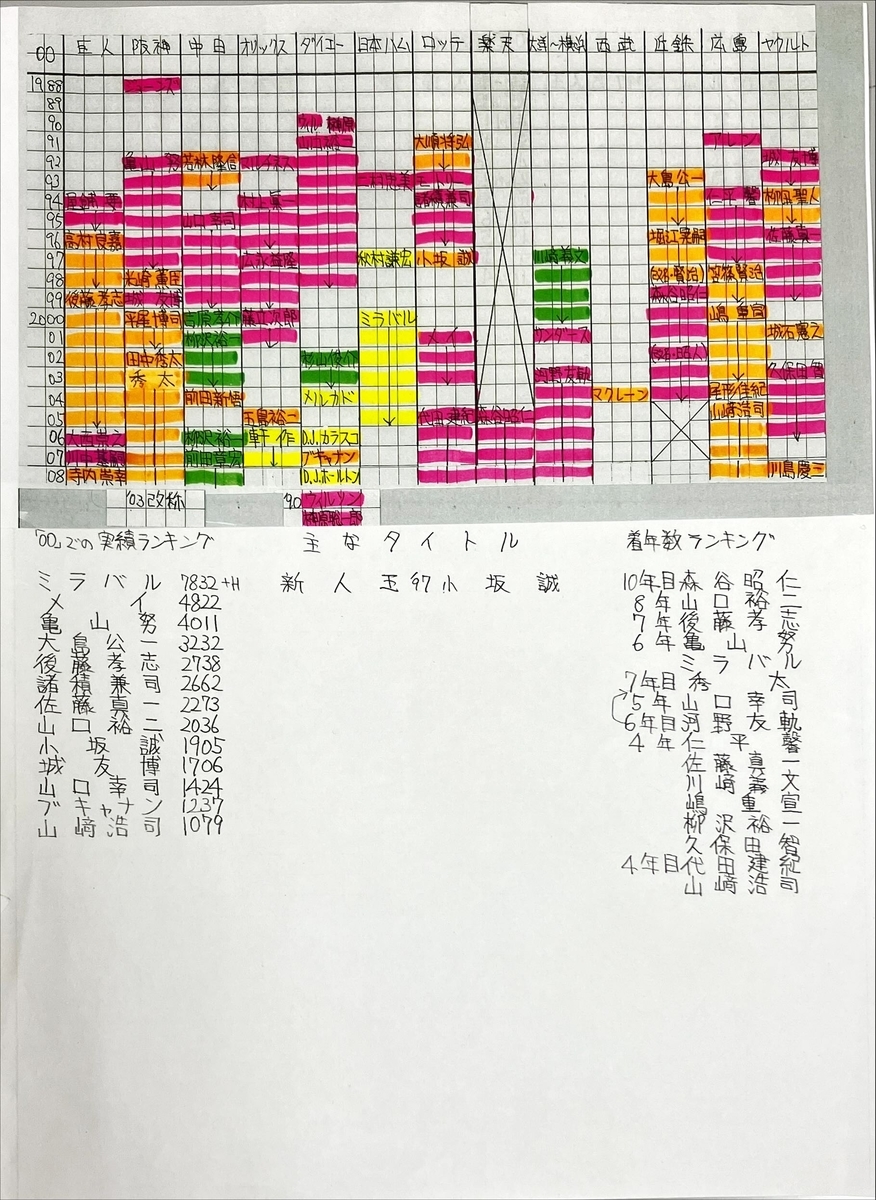 00 巨人 阪神 中日 オリックス ダイエー 日本ハム ロッテ 楽天 大洋〜横浜 西武 近鉄 広島 ヤクルト
1988 ジョーンズ
89
90 ウィル 榊原
91 山口裕二 大順将弘 アレン
92 亀山 努 若林隆信 マルチネス 城 友博
93 二村忠美 大島公一
94 村上眞一 諸積兼司 仁平 馨 柳田聖人
95 山口幸司
96 高村良嘉 堀江晃嗣 佐藤真一
97 広永益隆 秋村謙宏 小坂 誠 川崎義文
98 米崎薫臣 笘篠賢治
99 後藤孝志 城 友博 森谷昭仁
2000 平尾博司 吉原孝介 藤立次郎 ミラバル 嶋 重宣
01 柳沢裕一 メイ サンダース 城石憲之
02 田中秀太 杉山俊介 (改名・昭人)
03 秀 太 河野友軌 久保田智
04 前田新悟 メルカド マクレーン 尾形佳紀
05 玉島裕一 代田建紀 森谷昭仁 山﨑浩司
06 大西崇之 柳沢裕一 D.J.カラスコ
07 前田章宏 ブキャナン
08 寺内崇幸 D.J.ホールトン 川島慶三
'03改称 90 ウィルソン
榊原聡一郎
「00」での実績ランキング 主なタイトル 着年数ランキング
ミラバル 7832+H 新人王97小坂誠 10年目森谷昭仁
メイ 4822 8年山口裕二
亀山努 4011 7年後藤孝志
大島公一 3232 6年亀山努
後藤孝志 2738 ミラバル
諸積兼司 2662 7年目秀太
佐藤真一 2273 5年山口幸司
山口裕二 2036 6年目河野友軌
小坂誠 1905 4年仁平馨
城友博 1706 佐藤真一
山口幸司 1424 川﨑義文
ブキャナン 1237 嶋重宣
山﨑浩司 1079 柳沢裕一
久保田智
4年目代田建紀
山﨑浩司